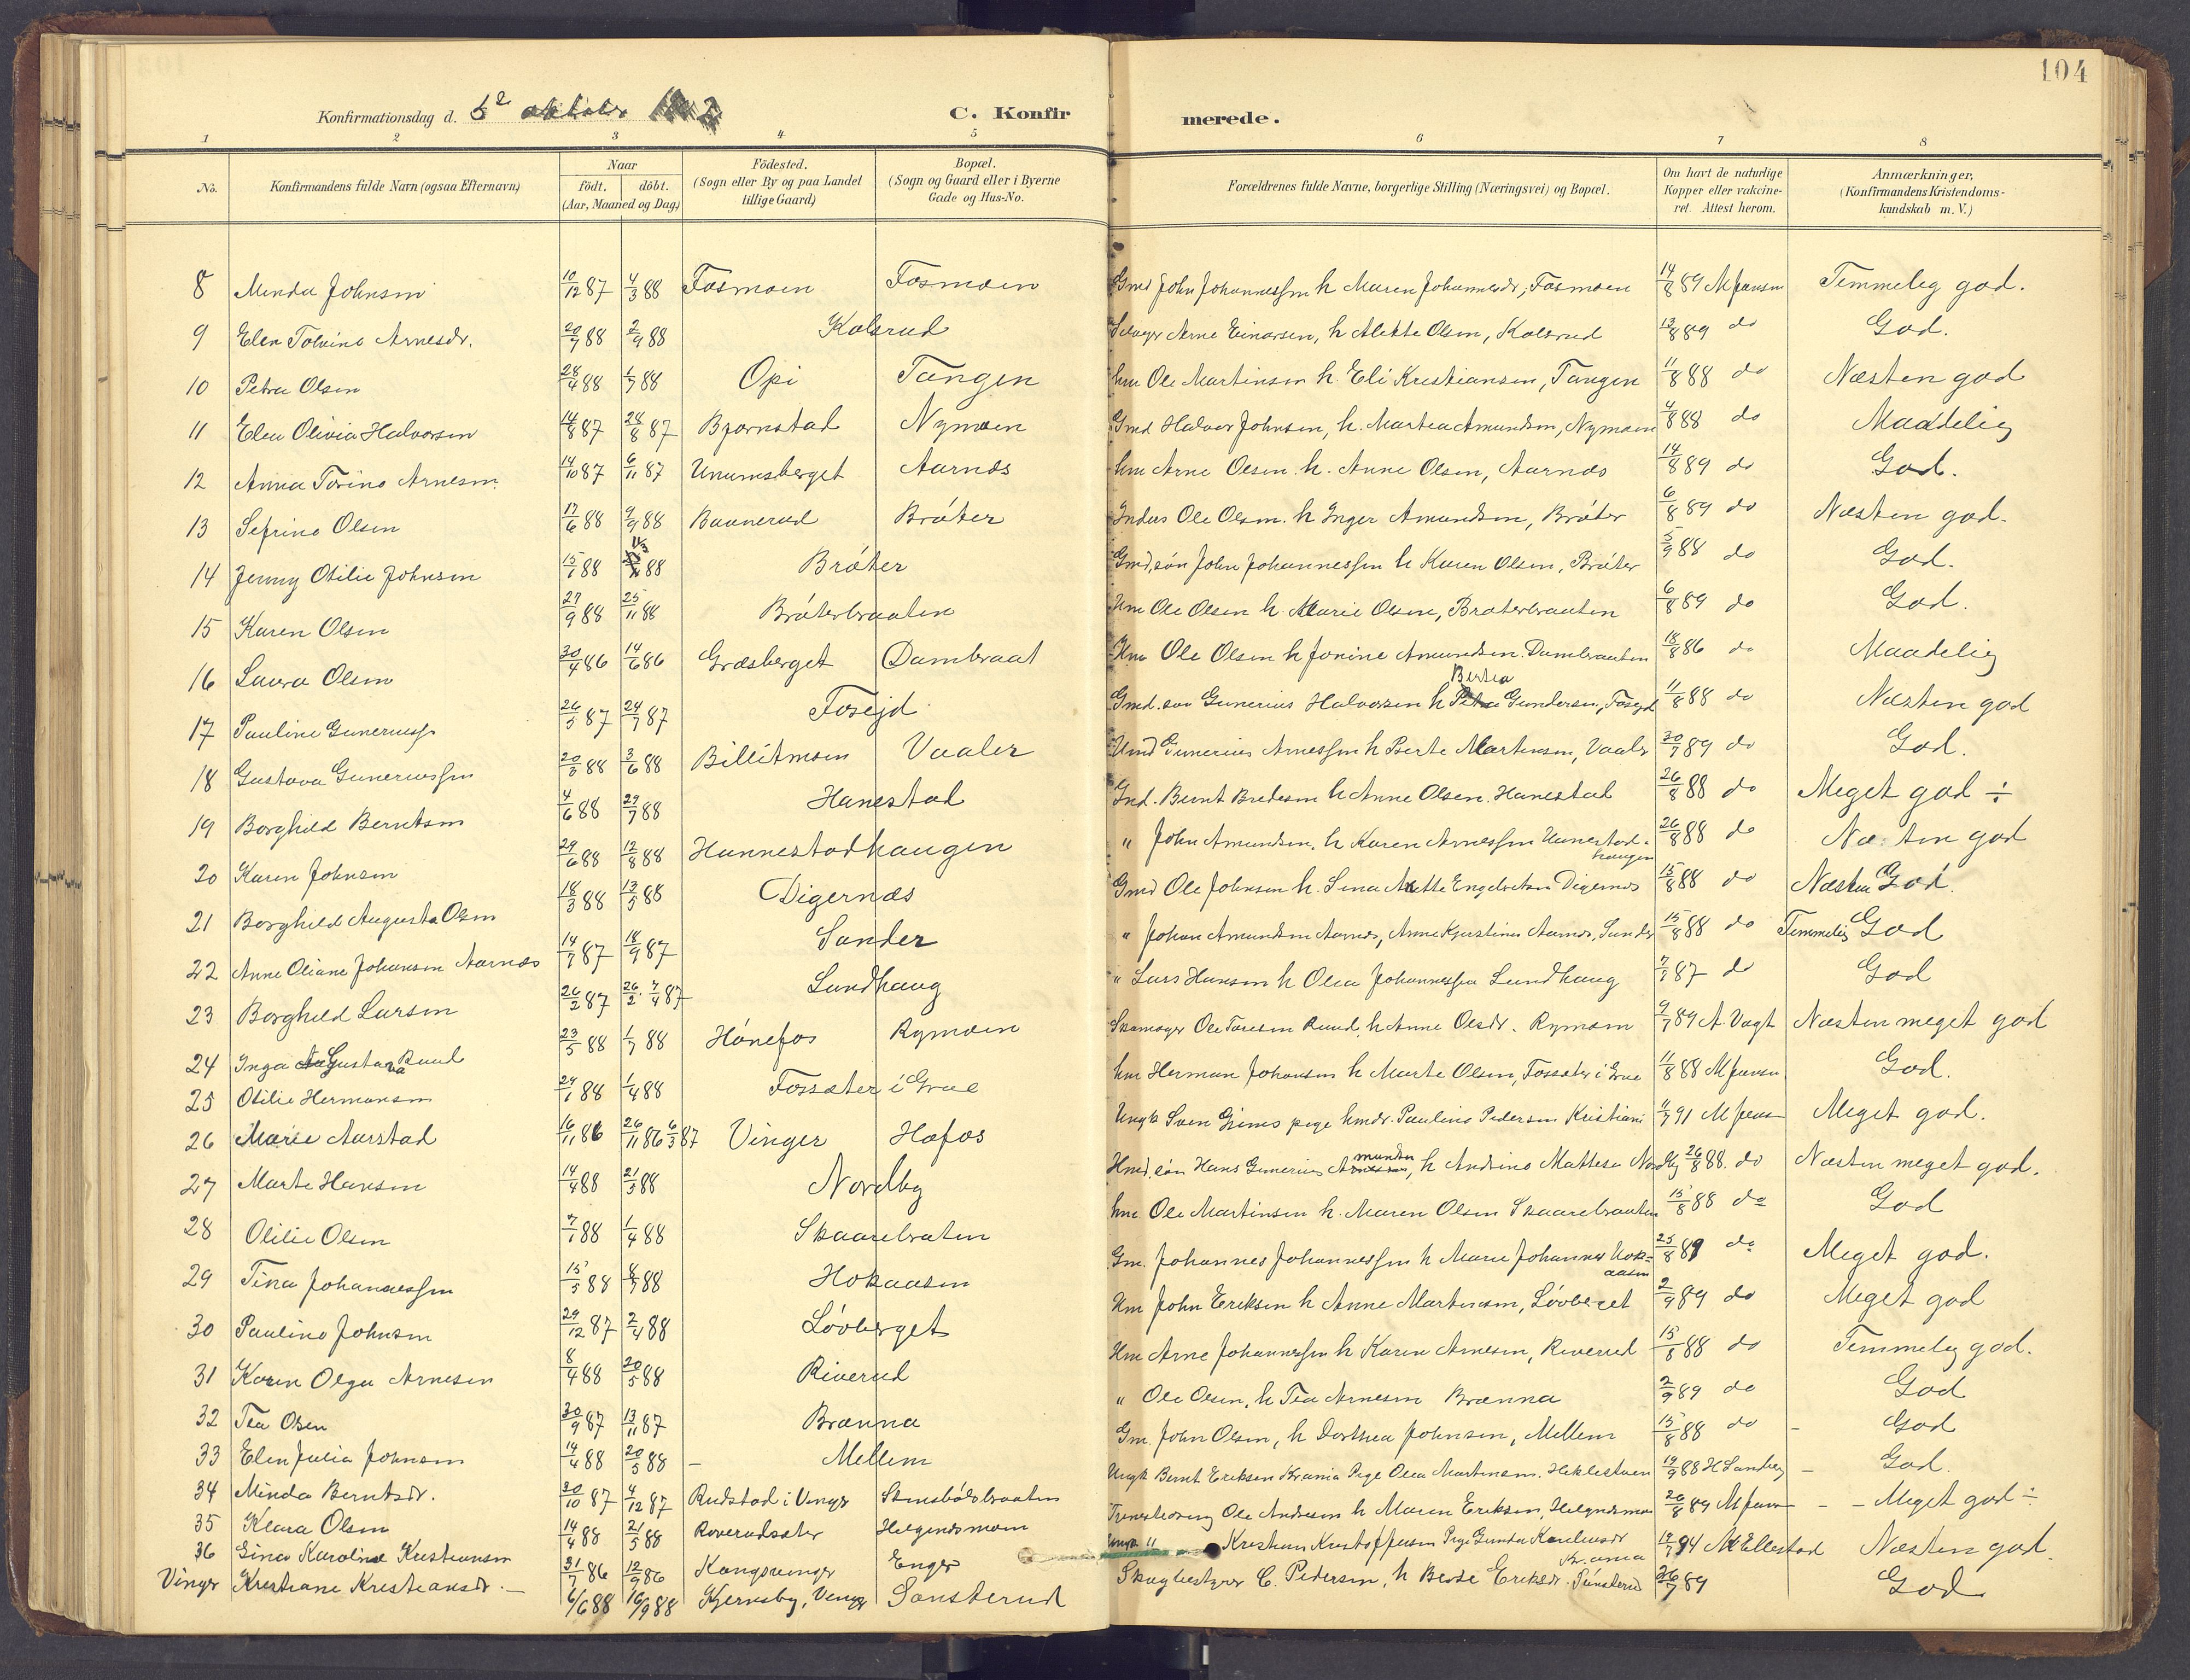 104
Konfirmationsdag d. oktober
C. Konfirmerede.
1 2 3 4 5 6 7 8
No.
Konfirmandens fulde Navn (ogsaa Efternavn)
Naar
födt. döbt.
(Aar, Maaned og Dag)
Födested.
(Sogn eller By og paa Landet
tillige Gaard)
Bopæl.
(Sogn og Gaard eller i Byerne
Gade og Hus-No.
Forældrenes fulde Navne, borgerlige Stilling (Næringsvei) og Bopæl.
Om havt de naturlige
Kopper eller vakcine-
ret. Attest herom.
Anmærkninger,
(Konfirmandens Kristendoms-
kundskab m. V.)
8 Minda Johnsen 10/12 87 4/3 88 Fosmoen Fosmoen Gmd John Johannessen h Maren Johannesdr, Fosmoen 14/8 89 M Jensen Temmelig god.
9 Elen Arnesdr. 20/7 88 2/9 88 Kolsrud Arne Einarsen, h Alette Olsen, Kolsrud 13/8 89 do God.
10 Petra Olsen 28/4 88 1/7 88 Opi Tangen hm Ole Martinsen h. Eli Kristiansen, Tangen 11/8 88 do Næsten god
11 Elea Olivia Halvorsen 14/8 87 28/8 87 Bjørnstad Nymoen Gmd Halvor Johnsen, h. Martea Amundsen, Nymoen 4/8 88 do Maadelig
12 Anna Arnesen 14/10 87 6/11 87 Aarnæs hm Arne Olsen h. Anne Olsen, Aarnæs 14/8 89 do God.
13 Sefrine Olsen 17/6 88 9/9 88 Baunerud Bråter Inders Ole Olsen. h Inger Amundsen, Bråter 6/8 89 do Næsten god.
14 Jenny Otilie Johnsen 15/1 88 11/3 88 Bråter Gmd. søn John Johannessen h Karen Olsen, Bråter 5/9 88 do God.
15 Karen Olsen 27/9 88 25/11 88 Bråterbraaten Hm Ole Olsen h. Marie Olsen, Braterbraaten 6/8 89 do God.
16 Laura Olsen 30/4 86 14/6 86 Græsberget Dambraat Hm Ole Olsen h Jonine Amundsen. Dambraaten 18/8 86 do Maadelig
17 Pauline Gunerius 26/5 87 24/7 87 Fosejd Gmd. søn Gunerius Halvorsen h Bertea Gundersen, Fosejd 11/8 88 do Næsten god
18 Gustava Guneriussen 20/3 88 3/6 88 Billitmoen Vaaler Gunerius Arnessen h Berte Martinsen, Vaaler 30/7 89 do God.
19 Borghild Berntsen 4/6 88 29/7 88 Hanestad Gmd. Bernt Bredesen h Anne Olsen. Hanestad 26/8 88 do Meget god ÷
20 Karen Johnsen 29/6 88 12/8 88 Hannestadhaugen " John Amundsen. h Karen Arnessen Hanestad-
haugen 26/8 88 do Næsten god
21 Borghild Augusta Olsen 18/3 88 13/5 88 Digernæs Gmd Ole Johnsen h. Sina Engebretsen Digernæs 15/8 88 do Næsten God.
22 Anne Oliane Johansen Aarnæs 14/7 87 18/9 87 Sander " Johan Amundsen Aarnæs, Anne Kjerstine Aarnæs, Sander 15/8 88 do Temmelig God
23 Borghild Larsen 26/2 87 26/2. 7/4 87 Lundhaug " Lars Hansen h Olea Johannessen Lundhaug 87 do God
24 Inga Gustava Ruud 23/5 88 1/7 88 Hønefos Rymoen Skomager Ole Toresen Ruud, h Anne Olsdr. Rymoen 9/7 89 A. Vagt Næsten meget god
25 Otilie Hermansen 24/1 88 1/4 88 Fossæter i Grue hm Herman Johansen h Marte Olsen, Fossæter i Grue 11/8 88 M Jensen God.
26 Marie Aurstad 16/11 86 26/11 86 6/3 87 Vinger Hafos Ungk Sven Grims pige hmdr. Pauline Pedersen Kristiani 91 M Jensen Meget god.
27 Marte Hansen 14/4 88 21/5 88 Nordby Hmd. søn Hans Gunerius Amundsen, h Andrine Mattesen Nordby 26/8 88. do Næsten meget god.
28 Otilie Olsen 7/1 88 1/4 88 Skaarebraten hm Ole Martinsen h. Maren Olsen Skaarebraaten 15/8 88 do God
29 Tina Johannessen 15/5 88 8/7 88 Hokaasen Gm. Johannes Johannessen h Marie Johannes Hok-
aasen 25/8 89 do Meget god.
30 Pauline Johnsen 29/12 87 2/4 88 Løvberget Hm John Eriksen h Anne Martinsen, Løvberget 2/9 89 do Meget god
31 Karen Olga Arnesen 8/4 88 20/5 88 Riverud Hm Arne Johannessen h Karen Arnesen, Riverud 15/8 88 do Temmelig god.
32 Tea Olsen 30/9 87 13/11 87 Brænna " Ole Olsen, h Tea Arnesen Brænna 2/9 89 do God
33 Elen Julia Johnsen 14/4 88 20/5 88 Mellem Gm. John Olsen, h Dorthea Johnsen, Mellem 15/8 88 do God
34 Minda Berntsdr. 30/10 87 4/12 87 Rudstad i Vinger Ungk Bernt Eriksen Krania Pige Olea Martinsen. 19/9 88 H Sandberg God.
35 Klara Olsen 14/4 88 21/5 88 Roverudsæter Helgendsmoen Ole Andresen h Maren Eriksen, Helgendsmoen 26/8 89 M Jensen Meget god ÷
36 Gina Karoline Kristiansen 31/7 86 12/9 86 Kongsvinger Enger Ungk " Kristian Kristoffersen Pige Gunda Karelinsdr Kr.ania 94 M Ellestad Næsten god.
Vinger Kristiane Kristiansdr. 6/6 88 16/9 88 Kjernsby, Vinger Sønsterud Skogbestyrer C. Pedersen, h Berte Eriksdr. Sønsterud 26/7 89 God